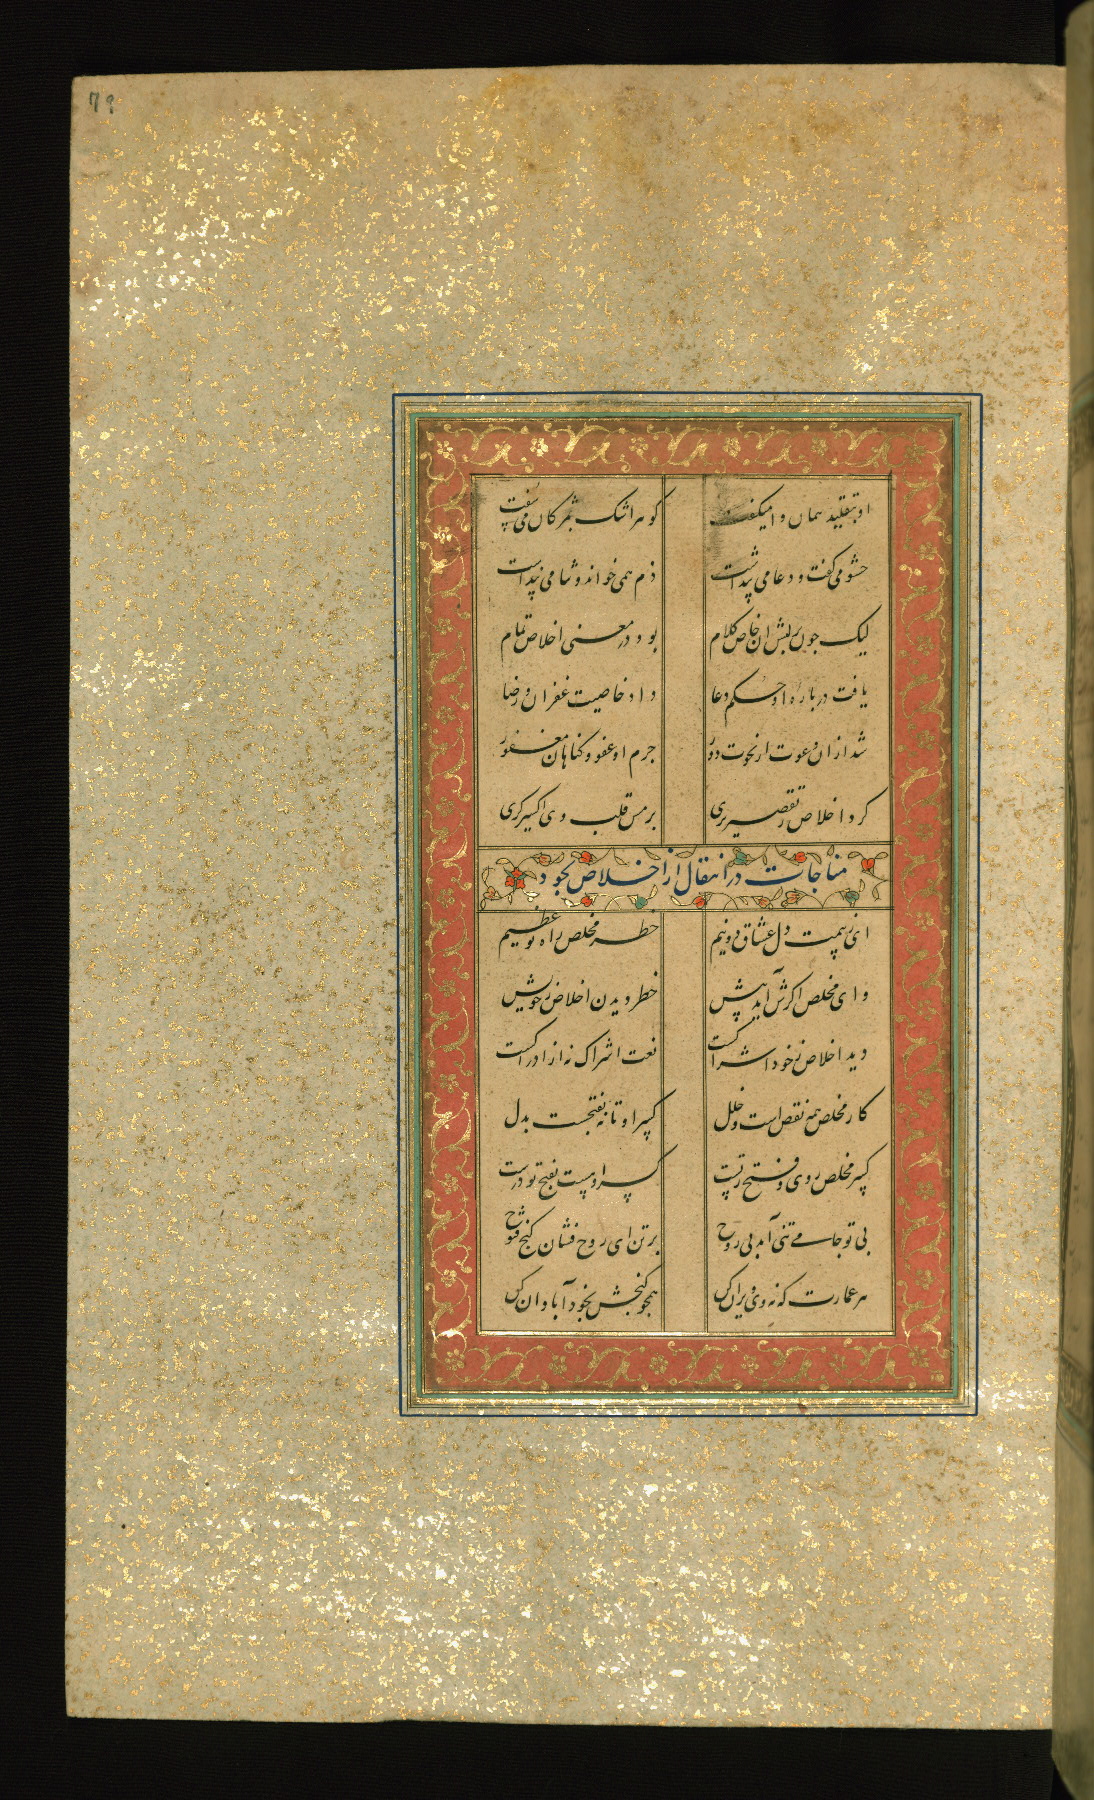 ٦٩
او بتقلید همان وا میگفت گوهر اشک بمژگان می سفت
حشو می گفت و دعا می پنداشت ذم همی خواند و ثنا می پنداشت
لیک چون بر لبش آن خاص کلام بود در معنی اخلاص تمام
یافت درباره او حکم دعا داد خاصیت غفران و رضا
شد از آن دعوت از نخوت دور جرم او عفو و گناهان مغفور
کرد اخلاص ز تقصیر بری بر مس قلب وی اکسیر گری
مناجات در انتقال از اخلاص بجود
ای ز بیمت دل عشاق دو نیم خطر مخلص راه تو عظیم
وای مخلص اگرش آید پیش خطر دیدن اخلاص ز خویش
دید اخلاص ز خود اشراکست نعت اشراک نه از ادراکست
کار مخلص همه نقص است و خلل کسر او تا نه بفتحست بدل
کسر مخلص ز وی و فتح ز تست کسر او هست بفتح تو درست
بی تو جامی تنی آمد بی روح بر تن ای روح فشان گنج فتوح
هر عمارت که نه وی ویران کن همچو گنجش بخود آبادان کن